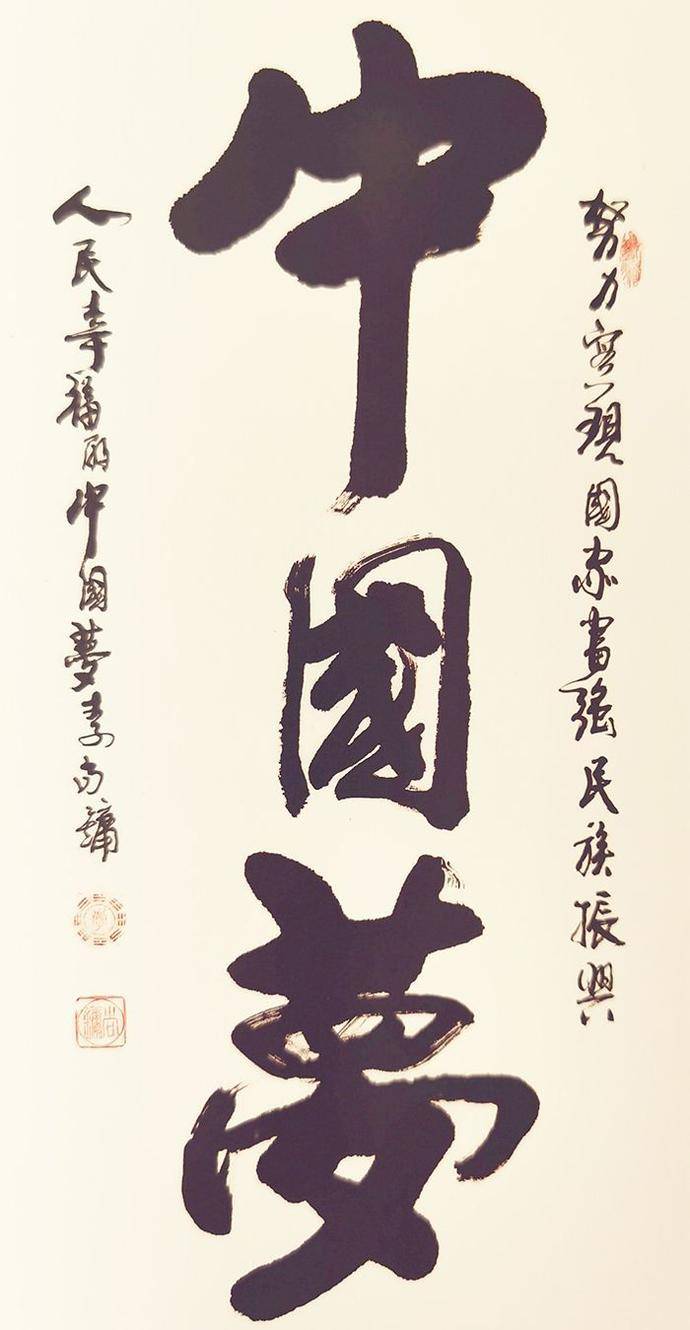 努力實現國家富強民族振興
中國夢
人民幸福的中國夢李尚鏞